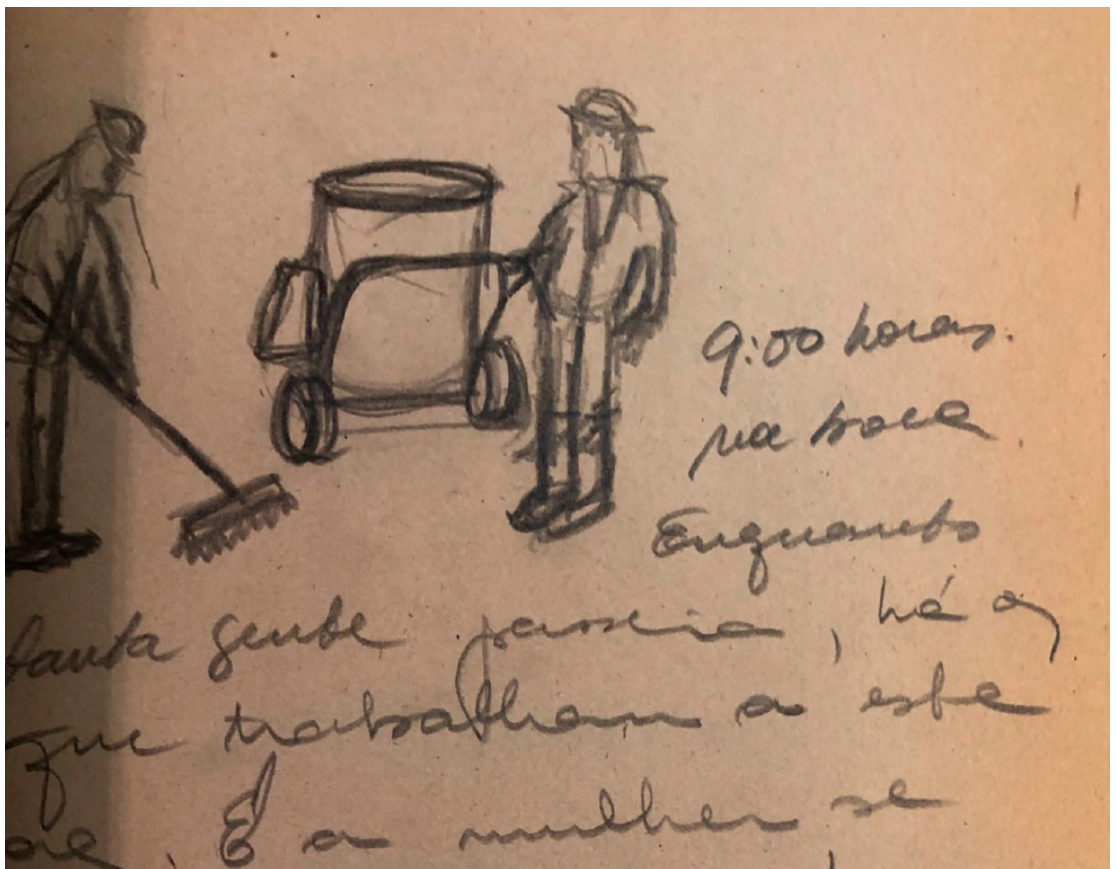 9:00 horas.
na boca
Enquanto
tanta gente passeia, há os
que trabalham a esta
É a mulher se